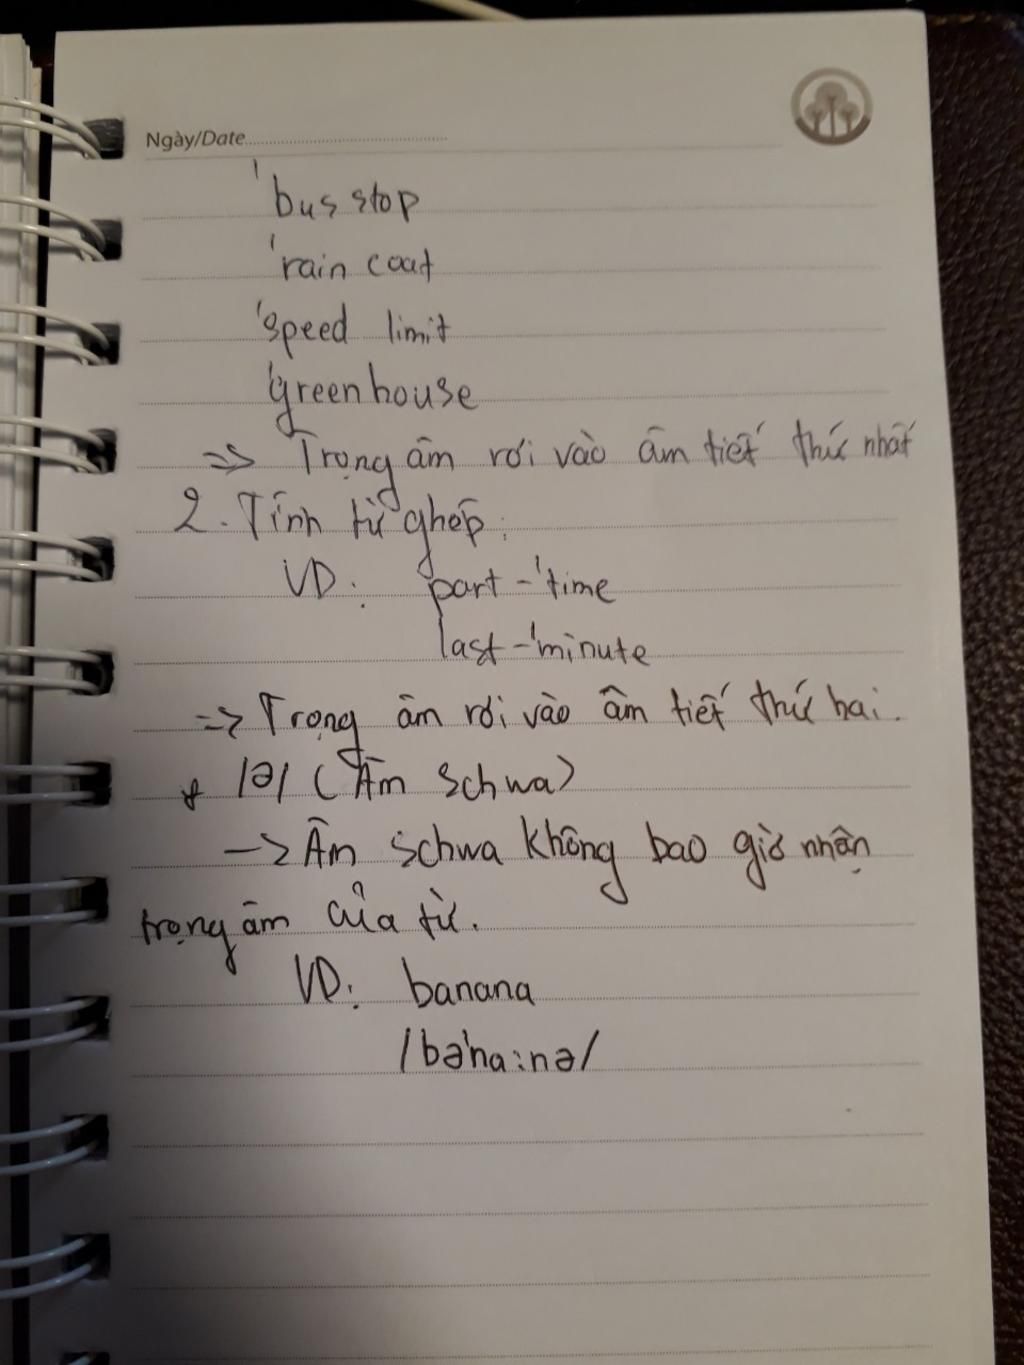 Ngày/Date
'bus stop
'rain coat
'speed limit
'greenhouse
=> Trọng âm rơi vào âm tiết thứ nhất
2. Tính từ ghép:
VD: part-'time
last-'minute
=> Trọng âm rơi vào âm tiết thứ hai.
* /ə/ (Âm schwa)
-> Âm schwa không bao giờ nhận
trọng âm của từ.
VD: banana
/bə'na:nə/